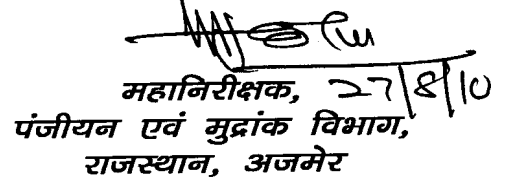 महानिरीक्षक, 27/8/10
पंजीयन एवं मुद्रांक विभाग,
राजस्थान, अजमेर